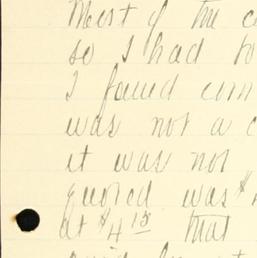 Most of the c
so I had to
I found corn
was not a c
it was not
quoted was $
at $4.15 that